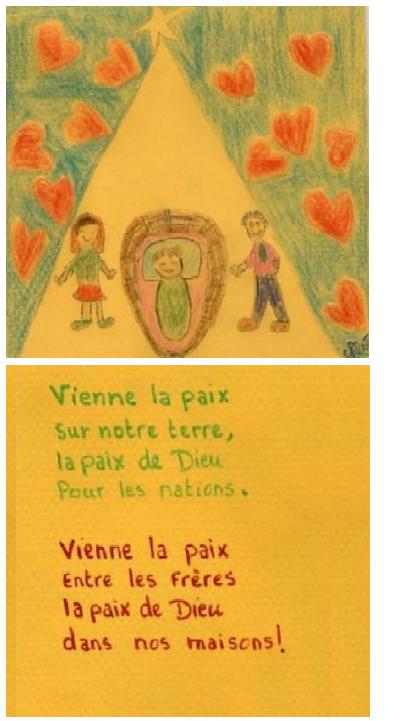 Vienne la paix
Sur notre terre,
la paix de Dieu
Pour les nations.
Vienne la paix
Entre les Frères
la paix de Dieu
dans nos maisons!